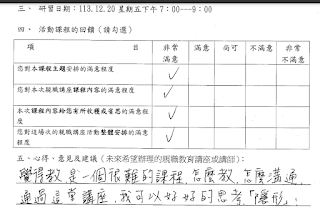 三、 研習日期：113.12.20 星期五下午7：00---9：00
四、 活動課程的回饋（請勾選）
項 目 非常滿意 滿意 尚可 不滿意 非常不滿意
您對本課程主題安排的滿意程度 ✓
您對本次親職講座課程內容的滿意程度 ✓
本次課程內容給您有所收穫或省思的滿意程度 ✓
您對這場次的親職講座活動整體安排的滿意程度 ✓
五、心得、意見及建議（未來希望辦理的親職教育講座或講師）：
覺得教是一個很難的課程,怎麼教,怎麼溝通,
通過這堂講座,我可以好好的思考「隱形」